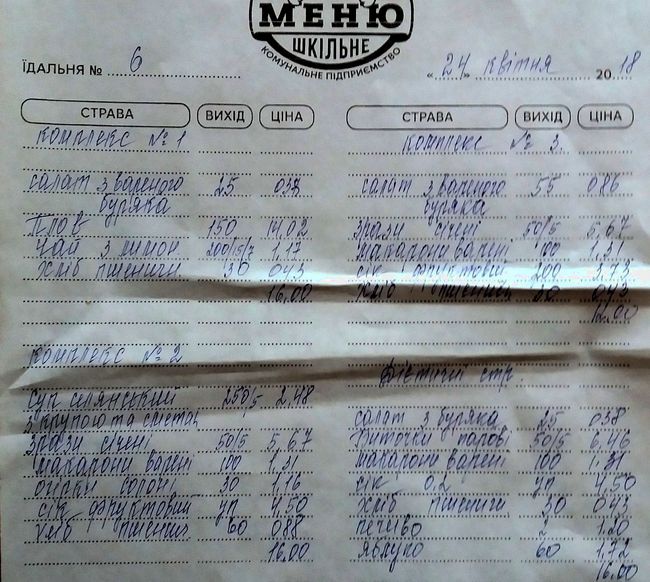 МЕНЮ
ШКІЛЬНЕ
КОМУНАЛЬНЕ ПІДПРИЄМСТВО
ЇДАЛЬНЯ № 6
«24» квітня 2018
СТРАВА ВИХІД ЦІНА
комплекс №1
салат з вареного 25 038
буряка
Плов 150 14,02
Чай з лимон 200/5/7 1,17
хліб пшенич 30 043
16,00
комплекс №2
суп селянський 250/5 2,48
з крупою та сметан
зрази січені 50/5 5,67
макарони варені 100 1,31
огірки солоні 30 1,16
сік фруктовий уп 4,50
хліб пшенич 60 088
16,00
СТРАВА ВИХІД ЦІНА
комплекс № 3
салат з вареного 55 086
буряка
зрази січені 50/5 5,67
макарони варені 100 1,31
сік фруктовий 200 3,73
хліб пшенич 30 043
12.00
Дієтичні стр.
салат з буряка 25 038
биточки парові 50/5 6,46
макарони варені 100 1,31
сік 0.2 уп 4,50
хліб пшенич 30 043
печиво 2 1,20
яблуко 60 1,72
16,00